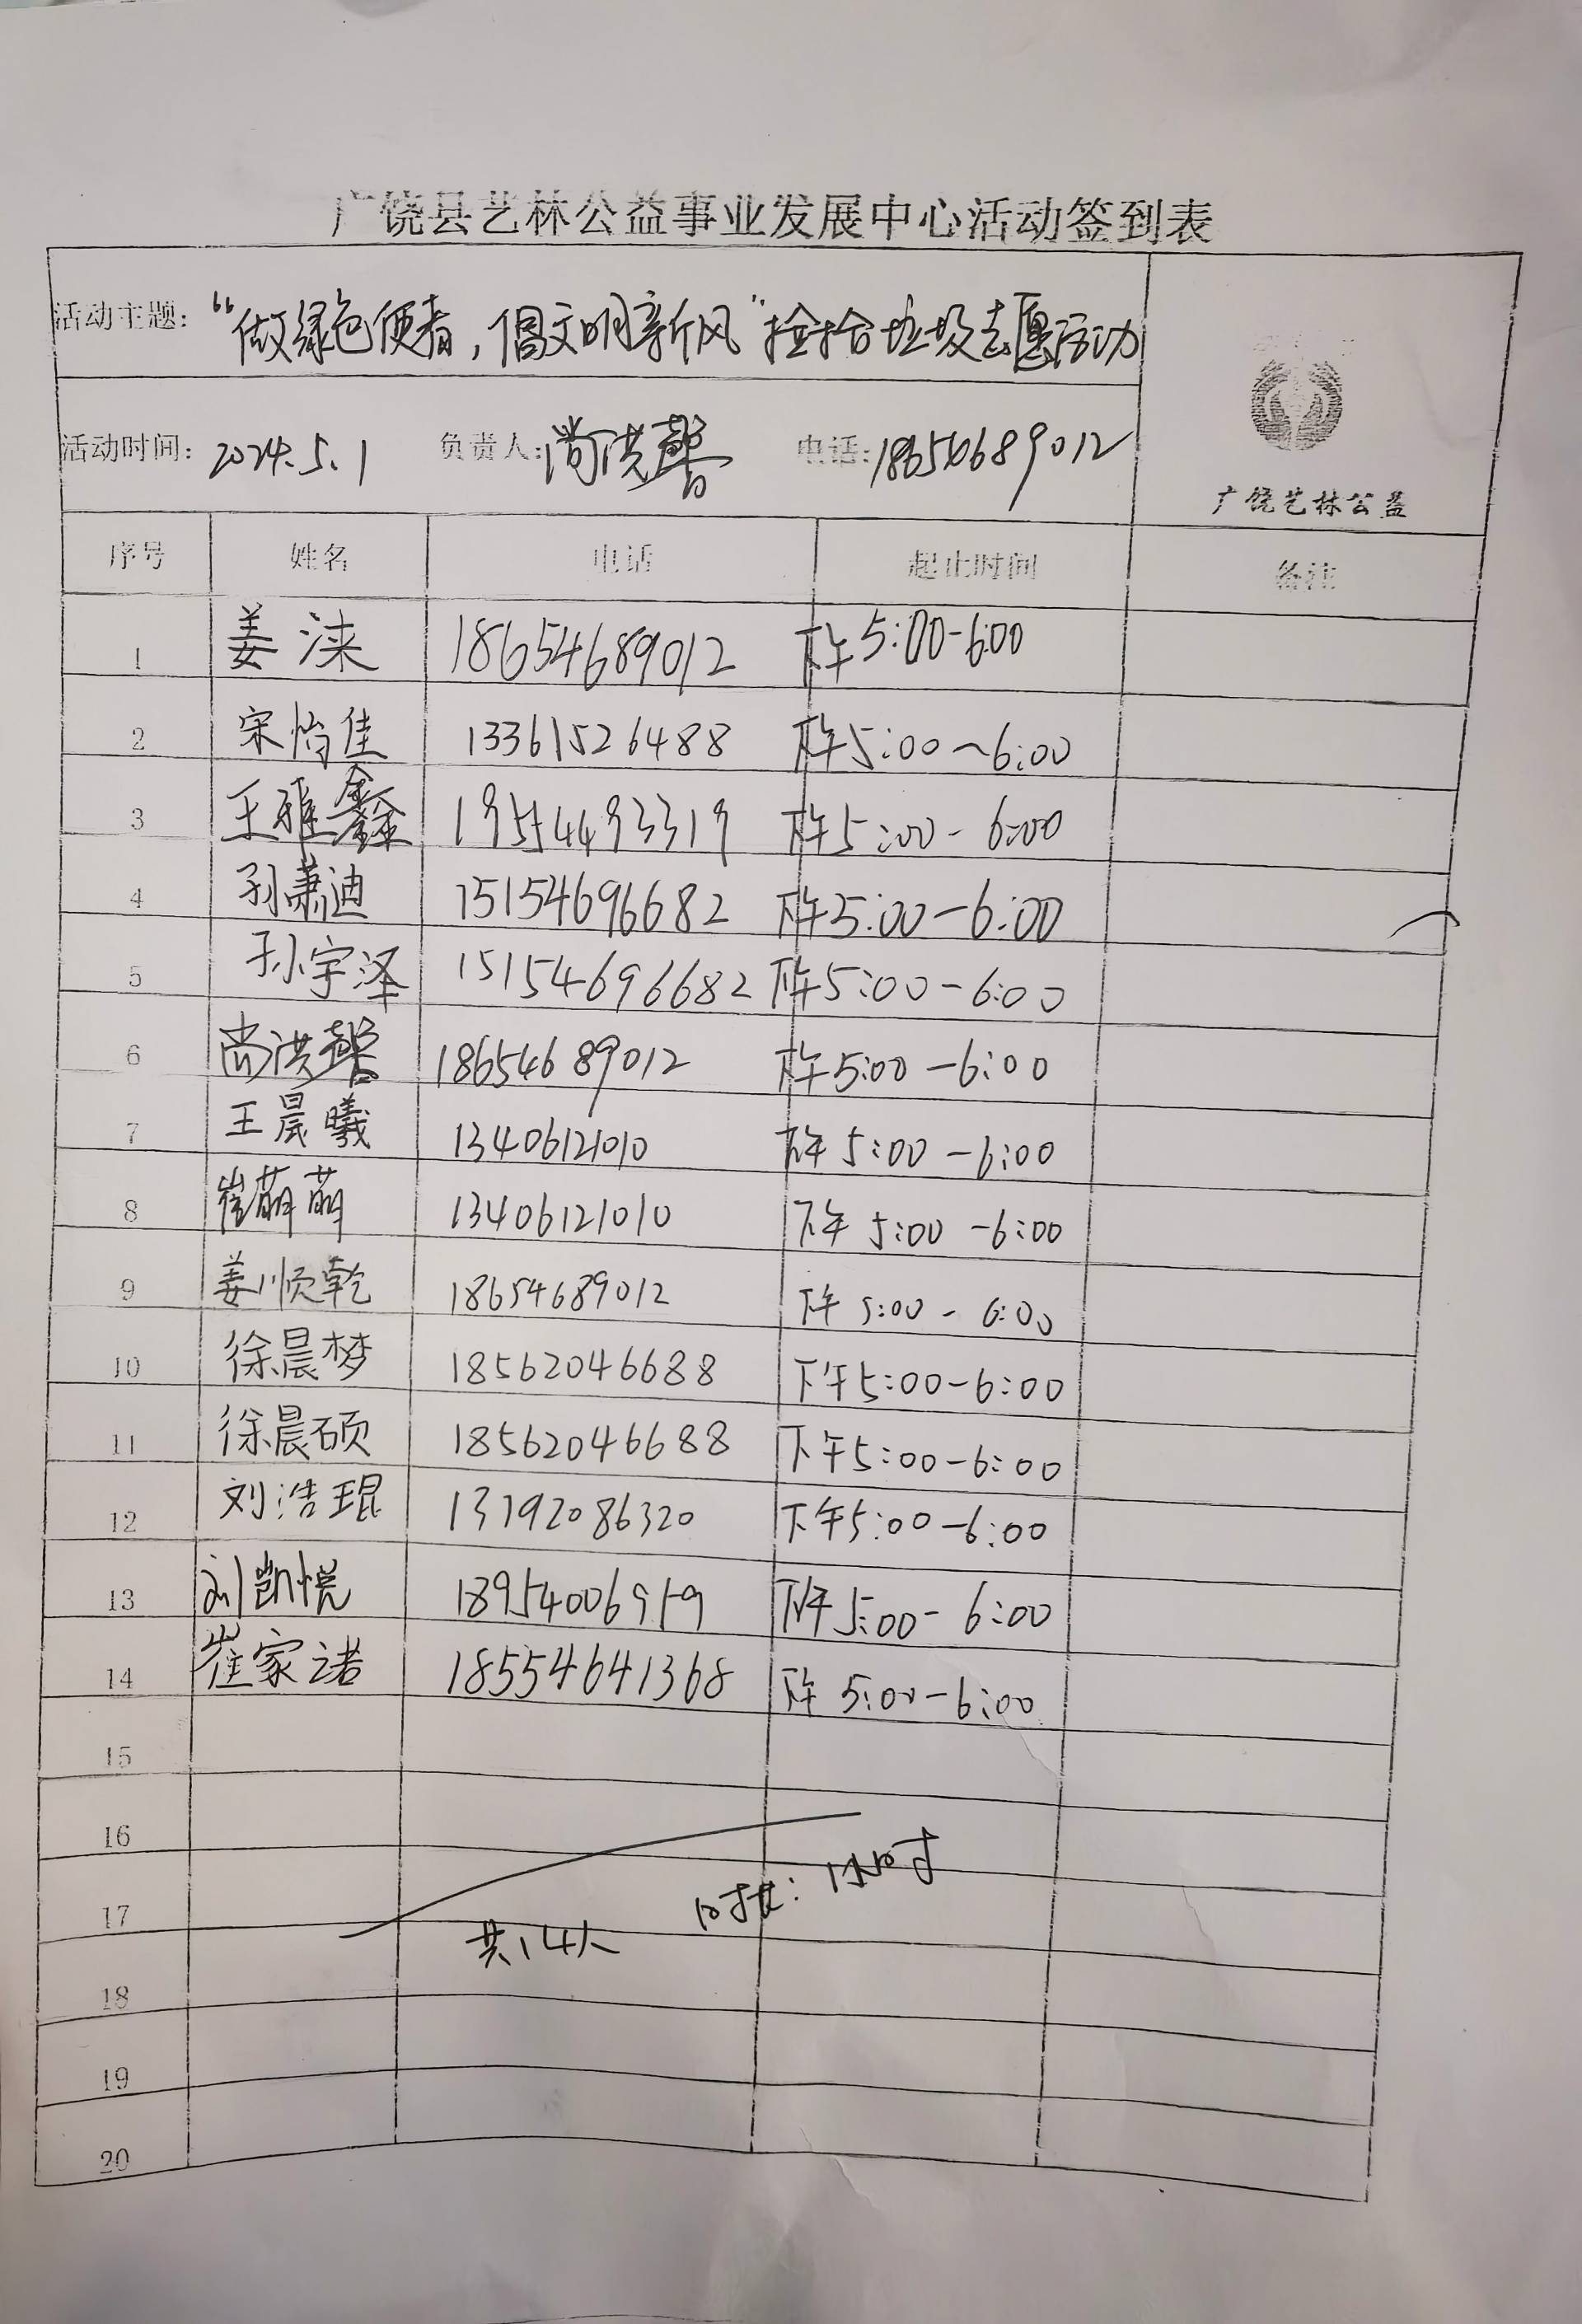 广饶县艺林公益事业发展中心活动签到表
活动主题：“做绿色使者，倡文明新风”捡拾垃圾志愿活动
活动时间：2024.5.1 负责人：尚洪馨 电话：18654689012
广饶艺林公益
序号 姓名 电话 起止时间 备注
1 姜涞 18654689012 下午5:00-6:00
2 宋怡佳 13361526488 下午5:00~6:00
3 王雅鑫 19544493319 下午5:00-6:00
4 孙萧迪 15154696682 下午5:00-6:00
5 孙宇泽 15154696682 下午5:00-6:00
6 尚洪馨 18654689012 下午5:00-6:00
7 王晨曦 13406121010 下午5:00-6:00
8 崔萌萌 13406121010 下午5:00-6:00
9 姜顺乾 18654689012 下午5:00-6:00
10 徐晨梦 18562046688 下午5:00-6:00
11 徐晨硕 18562046688 下午5:00-6:00
12 刘浩琨 下午5:00-6:00
13 刘凯悦 18954006959 下午5:00-6:00
14 崔家诺 18554641368 下午5:00-6:00
15
16
17 时长：1小时
共14人
18
19
20